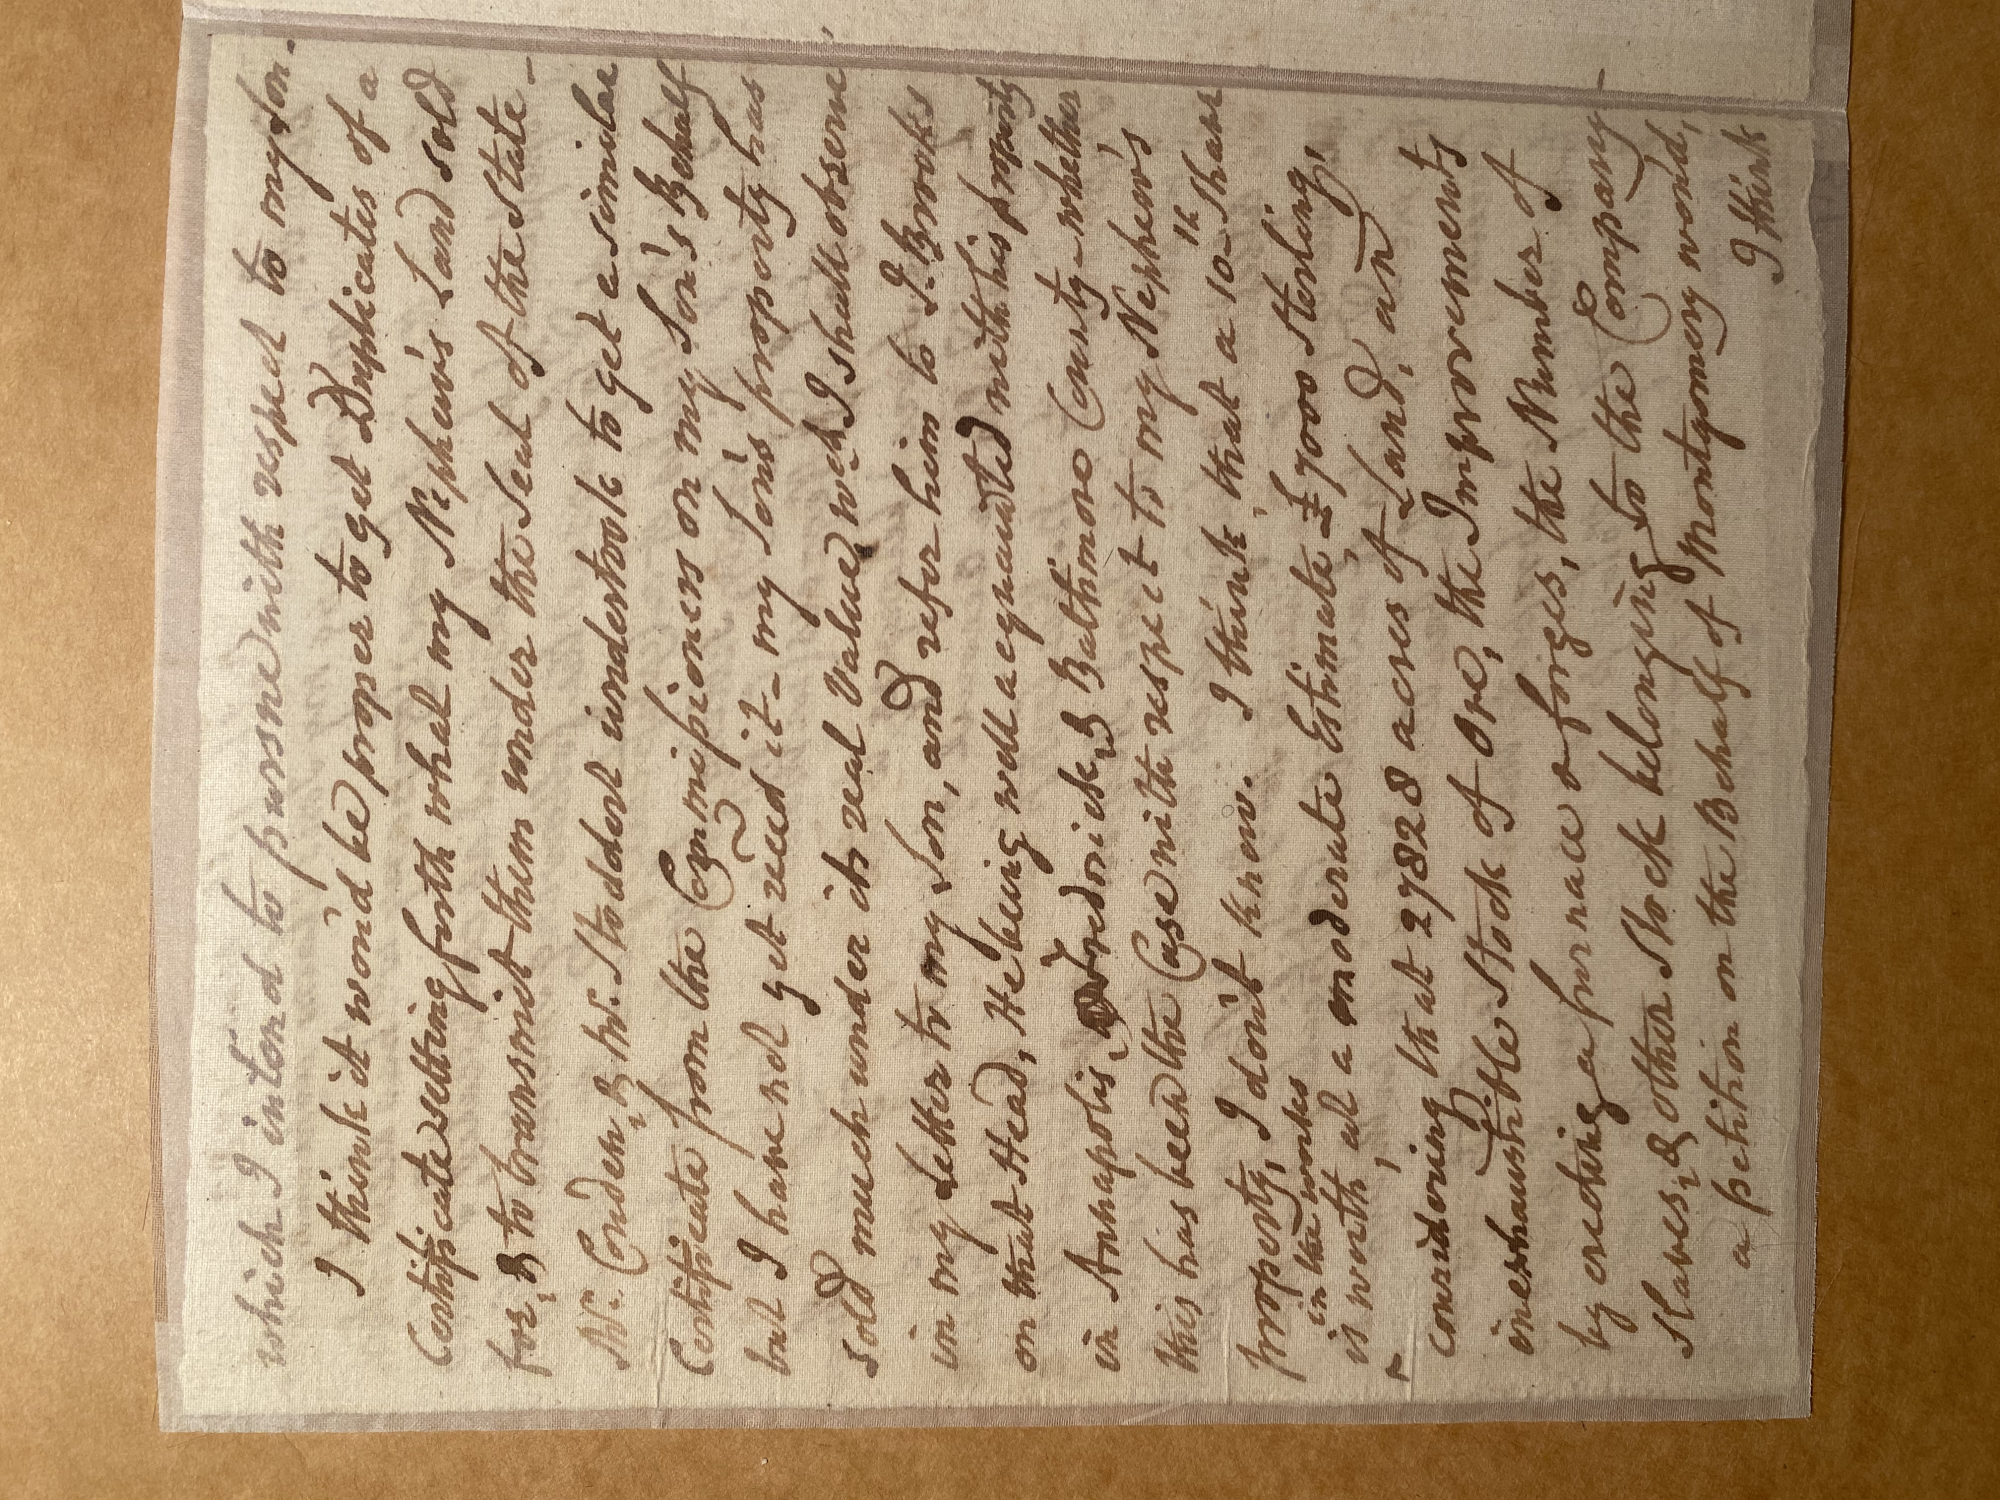 which I intend to pursue with respect to my son.
I think it wou'd be proper to get Duplicates of a
Certificate setting forth what my Nephew's Land sold
for, & to transmit them under the Seal of the State –
Mr. Conden, & Mr. Stoddert undertook to get a similar
Certificate from the Commissioners on my Son's Behalf
but I have not yet rec'd it – my Son's property has
sold much under its real Value, wch. I shall observe
in my Letter to my Son, and refer him to J. Brooks
on that Head, He being well acquainted with his property
in Annapolis, Fredrick, & Baltimore County – whether
this has been the Case with respect to my Nephew's
property, I don't know. I think, that a 10th Share
in the works
is worth, at a moderate Estimate, £7000 Sterling,
considering that 27828 acres of Land, an
inexhaustible Stock of Ore, the Improvements
by erecting a furnace & forges, the Number of
Slaves, & other Stock belonging to the Company –
a petition on the Behalf of Montgomery wou'd,
I think